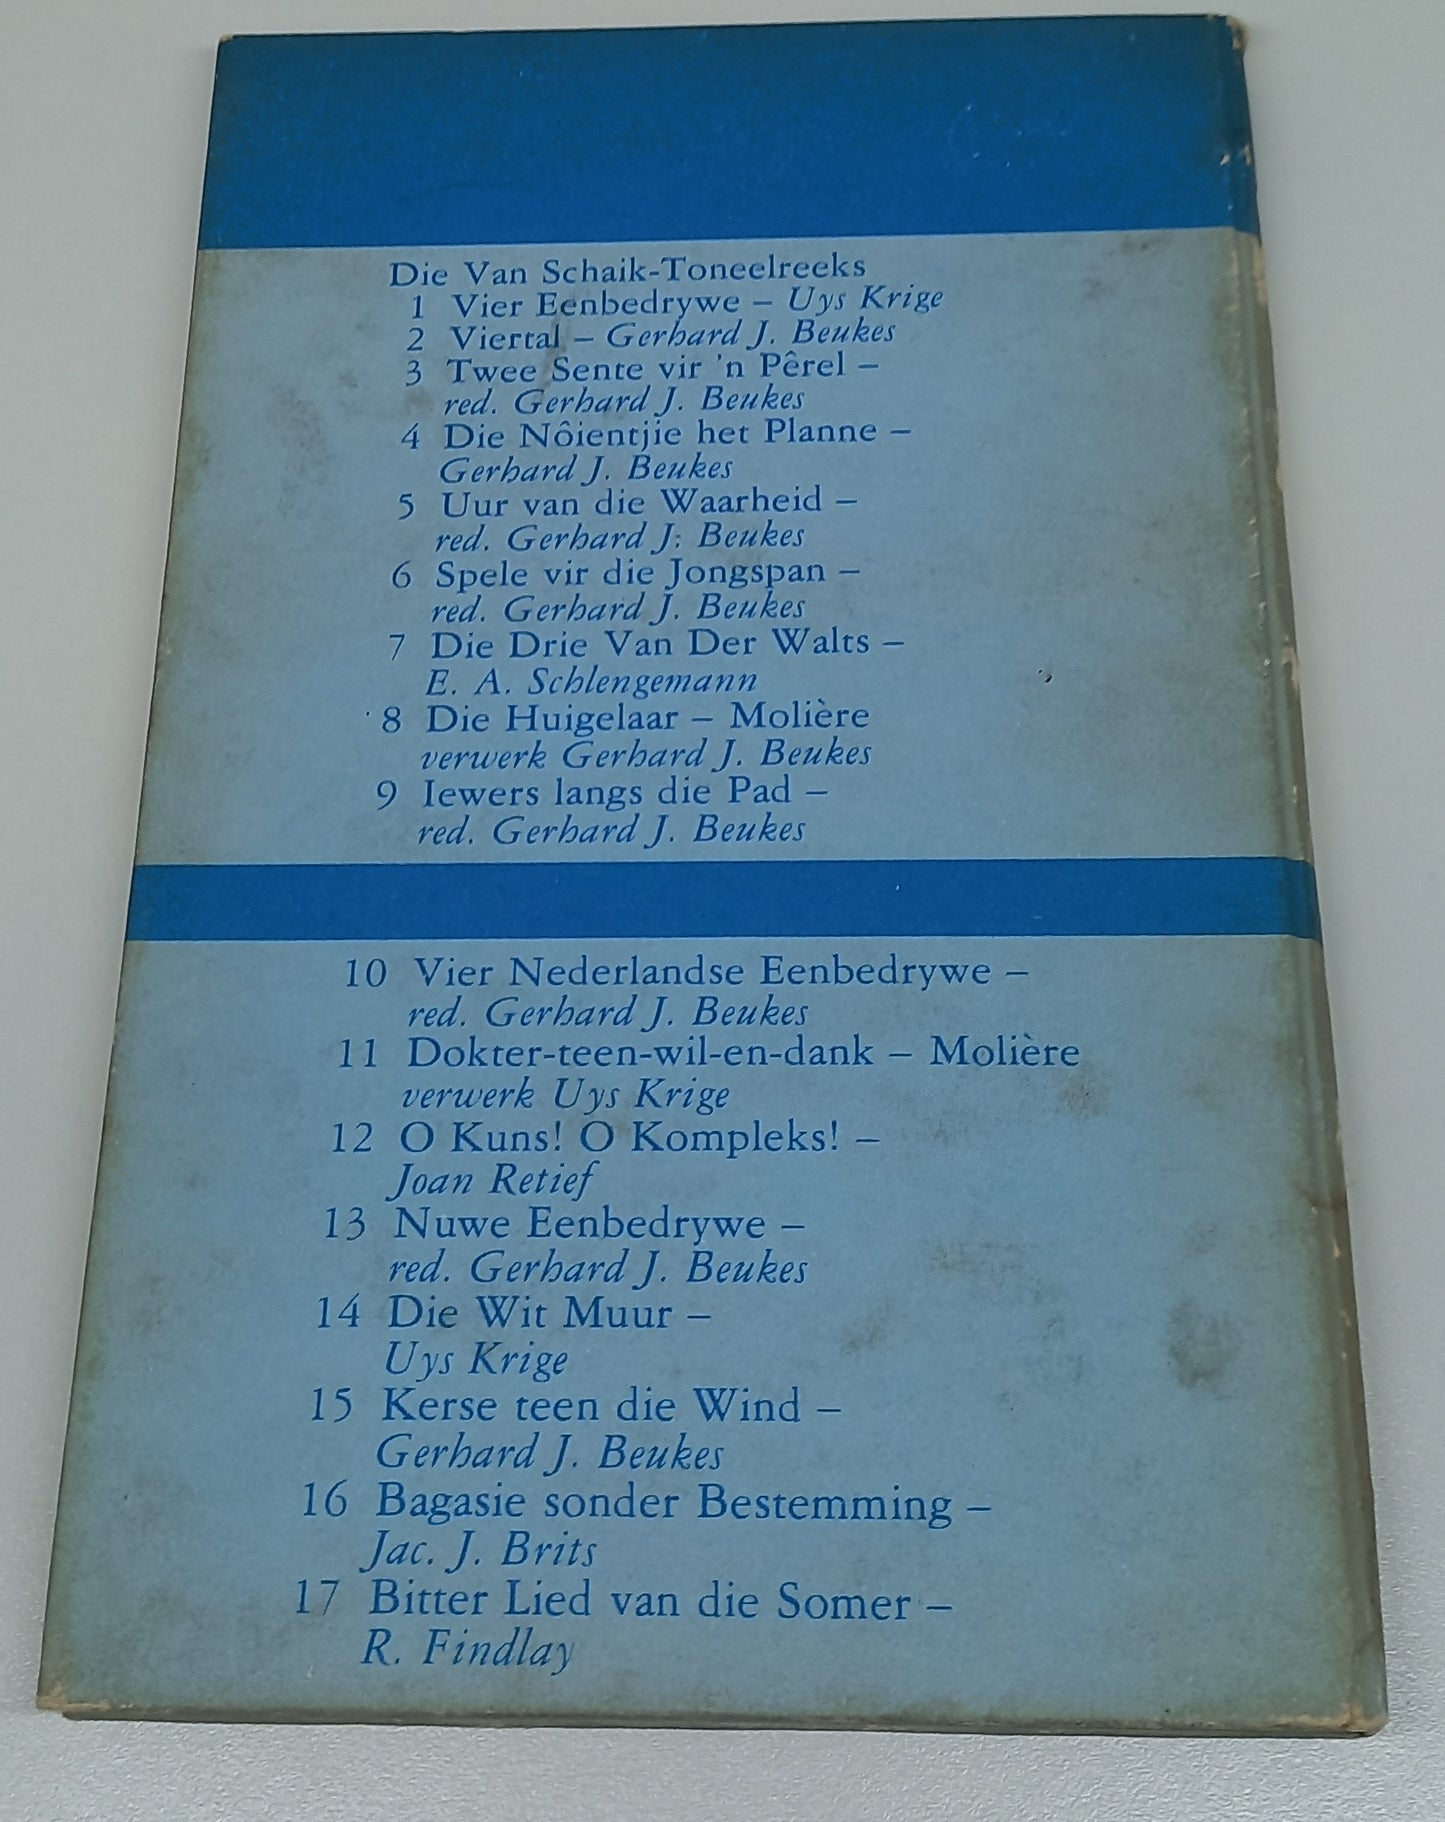 Die Van Schaik-Toneelreeks
1 Vier Eenbedrywe – Uys Krige
2 Viertal – Gerhard J. Beukes
3 Twee Sente vir 'n Pêrel –
red. Gerhard J. Beukes
4 Die Nôientjie het Planne –
Gerhard J. Beukes
5 Uur van die Waarheid –
red. Gerhard J. Beukes
6 Spele vir die Jongspan –
red. Gerhard J. Beukes
7 Die Drie Van Der Walts –
E. A. Schlengemann
8 Die Huigelaar – Molière
verwerk Gerhard J. Beukes
9 Iewers langs die Pad –
red. Gerhard J. Beukes
10 Vier Nederlandse Eenbedrywe –
red. Gerhard J. Beukes
11 Dokter-teen-wil-en-dank – Molière
verwerk Uys Krige
12 O Kuns! O Kompleks! –
Joan Retief
13 Nuwe Eenbedrywe –
red. Gerhard J. Beukes
14 Die Wit Muur –
Uys Krige
15 Kerse teen die Wind –
Gerhard J. Beukes
16 Bagasie sonder Bestemming –
Jac. J. Brits
17 Bitter Lied van die Somer –
R. Findlay